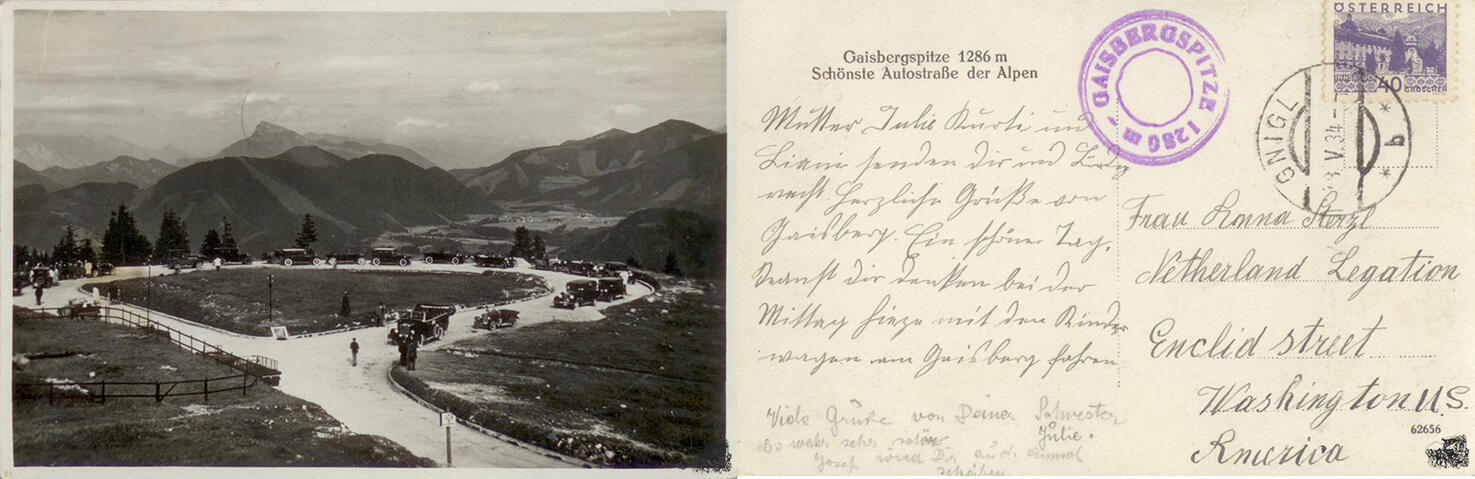 Gaisbergspitze 1286 m
Schönste Autostraße der Alpen
GAISBERGSPITZE 1286 m -
ÖSTERREICH
INNSBRUCK
40 GROSCHEN
GNIGL
V.34
* b *
Mutter Julie Kurti und
senden dir und
recht herzliche Grüße von
Gaisberg. Ein schöner Tag.
Kannst dir denken bei der
Mittag Hieze mit den Kinder
wagen am Gaisberg fahren
Viele Grüße von Deiner Schwester
Julie.
Es wahr sehr schön
Josef wird Dir auch einmal
schreiben
Frau Anna Sterzl
Netherland Legation
Euclid street
Washington U.S.
America
62656